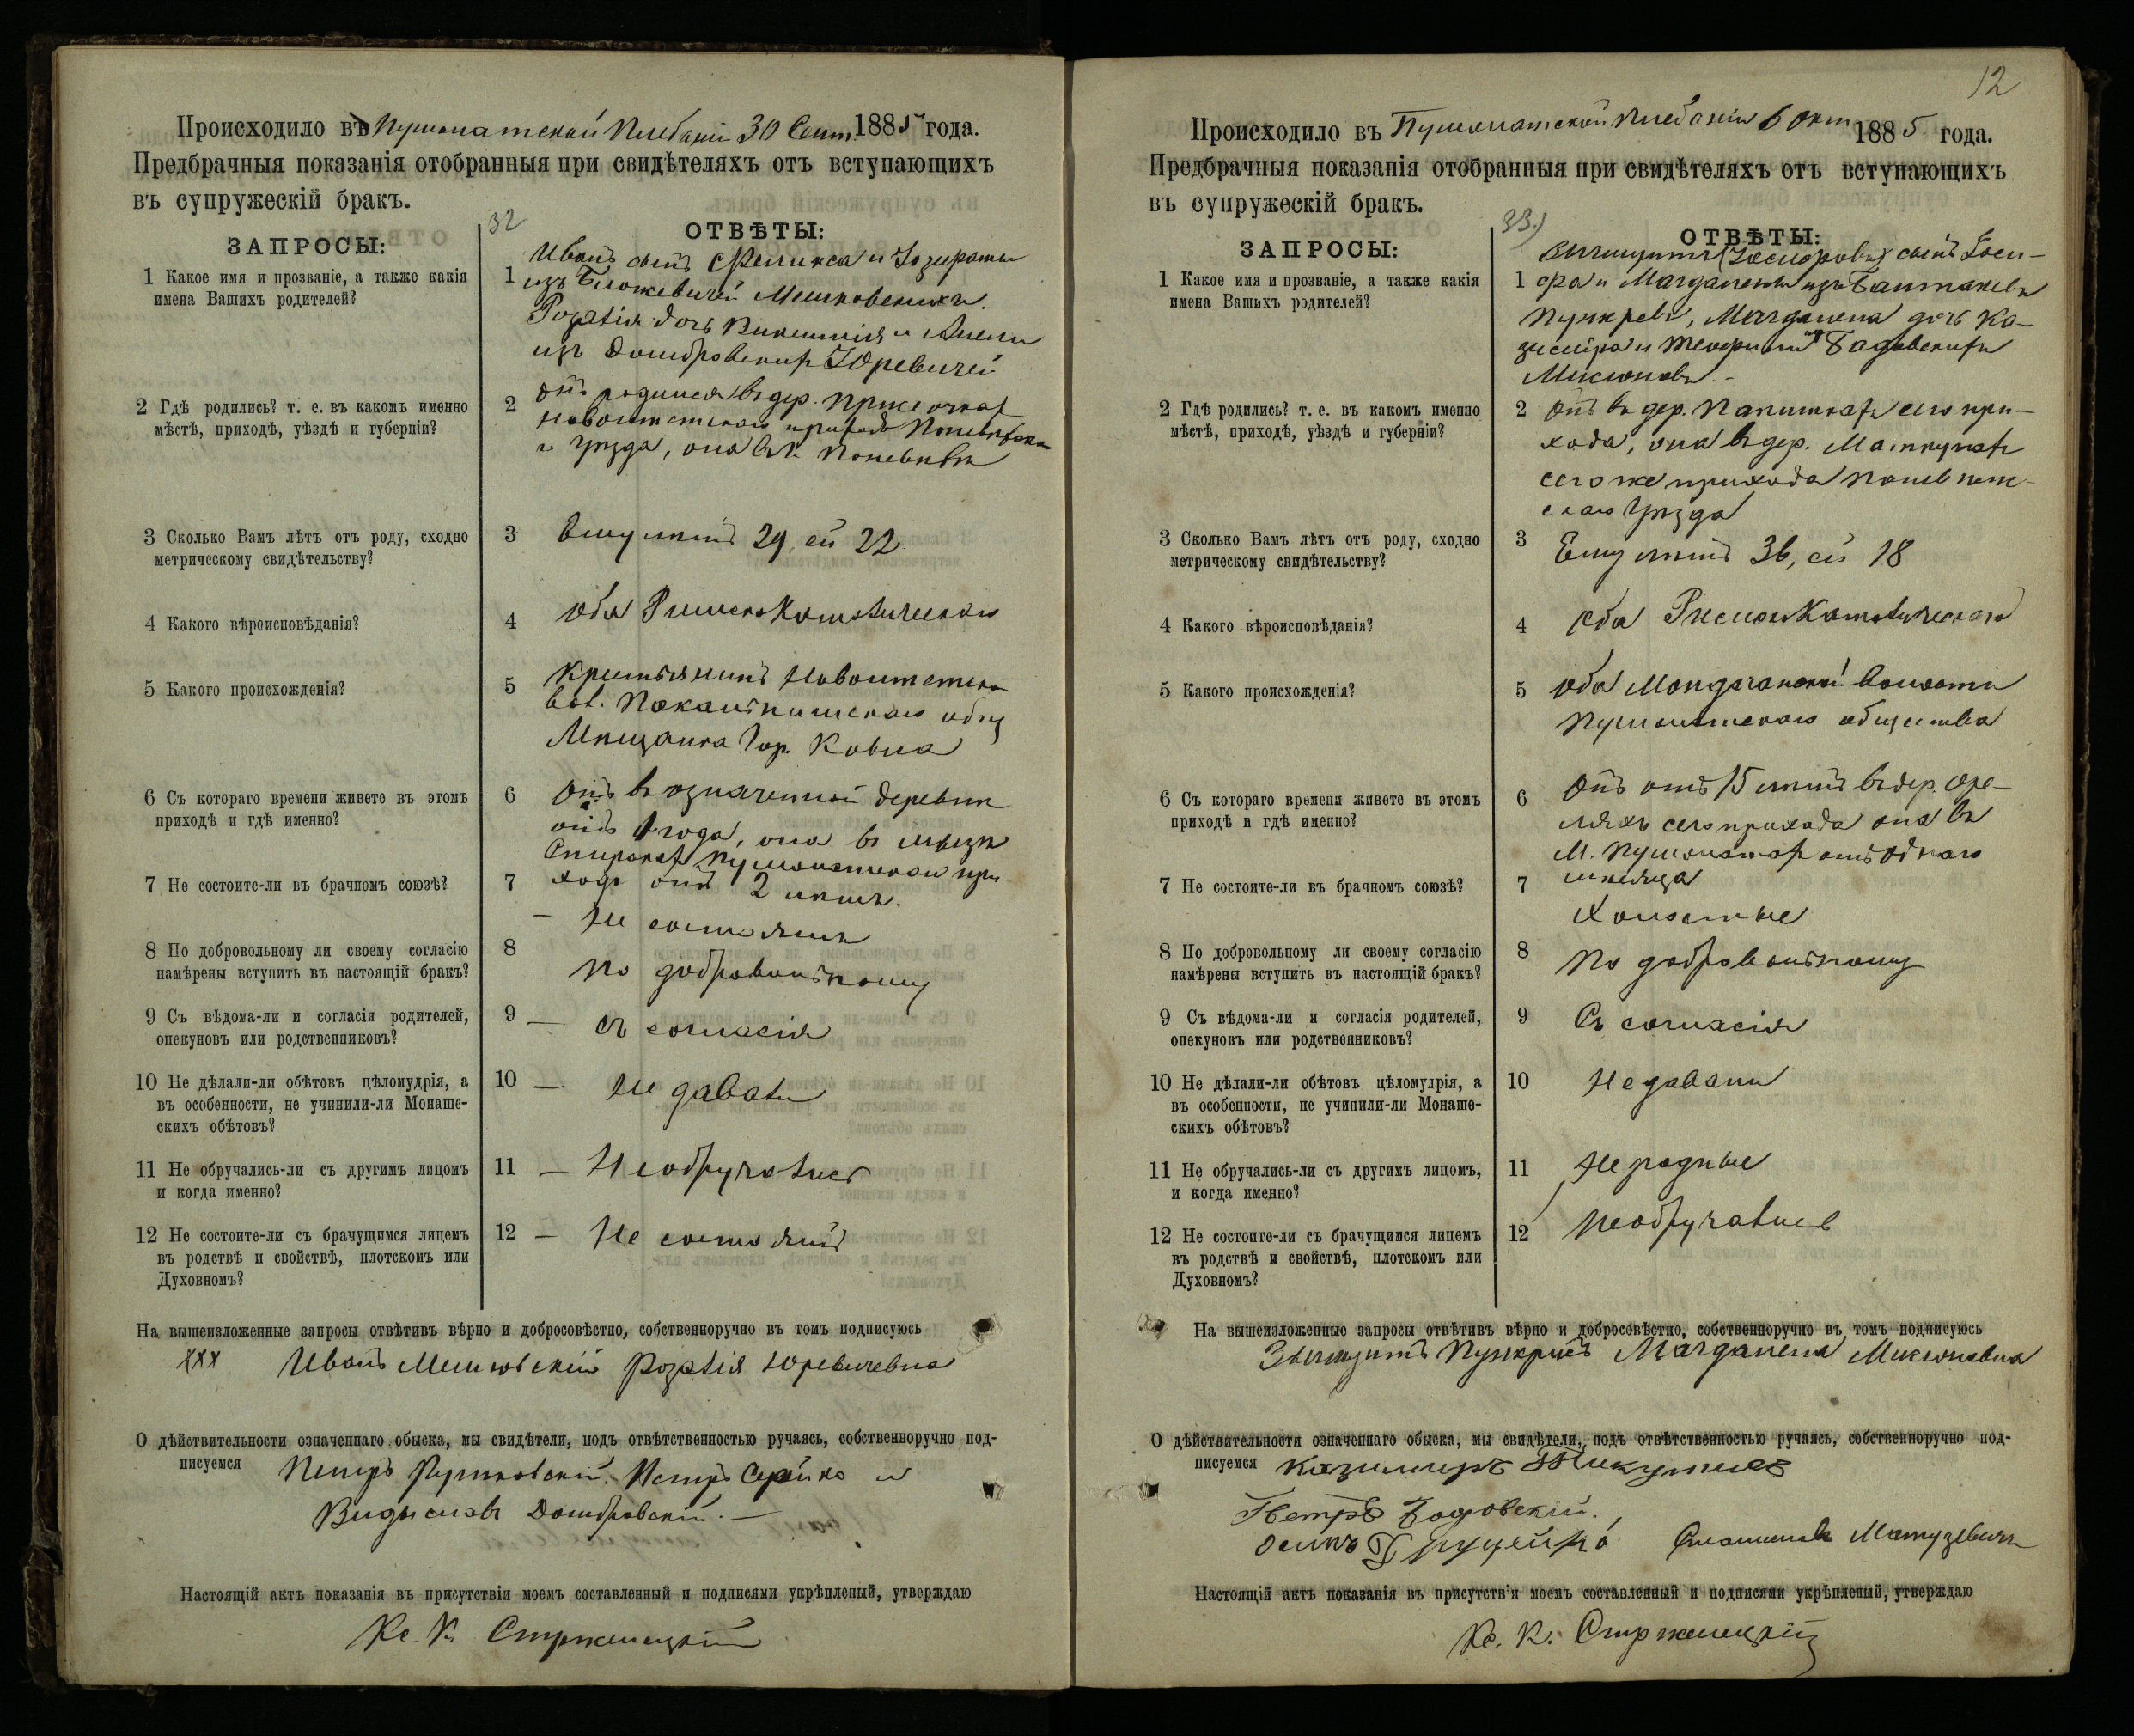 Происходило въ Пушолатской Плебаніи 30 Сент. 1885 года.
Предбрачныя показанія отобранныя при свидѣтеляхъ отъ вступающихъ
въ супружескій бракъ.
32
ЗАПРОСЫ:
ОТВѢТЫ:
1 Какое имя и прозваніе, а также какія
имена Вашихъ родителей?
1 Иванъ сынъ Феликса и Іозефаты
изъ Мешковскихъ.
Розалія дочь Викентія и Анели
изъ Домбровскихъ Юревичей
2 Гдѣ родились? т. е. въ какомъ именно
мѣстѣ, приходѣ, уѣздѣ и губерніи?
2 Онъ родился въ дер.
прихода Поневѣжска
го уѣзда, она въ г. Поневѣжѣ
3 Сколько Вамъ лѣтъ отъ роду, сходно
метрическому свидѣтельству?
3 Ему лѣтъ 29, ей 22
4 Какого вѣроисповѣданія?
4 Оба Римско Католическаго
5 Какого происхожденія?
5 Крестьянинъ
вол. общ
Мѣщанка гор. Ковна
6 Съ котораго времени живете въ этомъ
приходѣ и гдѣ именно?
6 Онъ въ означенной деревнѣ
отъ 1 года, она въ мызѣ
Пушолатскаго при
7 Не состоите-ли въ брачномъ союзѣ?
7 ходѣ отъ 2 лѣтъ.
— Не состоятъ
8 По добровольному ли своему согласію
намѣрены вступить въ настоящій бракъ?
8 По добровольному
9 Съ вѣдома-ли и согласія родителей,
опекуновъ или родственниковъ?
9 — Съ согласія
10 Не дѣлали-ли обѣтовъ цѣломудрія, а
въ особенности, не учинили-ли Монаше-
скихъ обѣтовъ?
10 — Не давали
11 Не обручались-ли съ другимъ лицомъ
и когда именно?
11 — Необручались
12 Не состоите-ли съ брачущимся лицемъ
въ родствѣ и свойствѣ, плотскомъ или
Духовномъ?
12 — Не состоятъ
На вышеизложенные запросы отвѣтивъ вѣрно и добросовѣстно, собственноручно въ томъ подписуюсь
ХХХ Иванъ Мешковскій Розалія Юревичевна
О дѣйствительности означеннаго обыска, мы свидѣтели, подъ отвѣтственностью ручаясь, собственноручно под-
писуемся Петръ Петръ и
Домбровскій. —
Настоящій актъ показанія въ присутствіи моемъ составленный и подписями укрѣпленый, утверждаю
Кс. К. Стржемецкій
12
Происходило въ Пушолатской Плебаніи 6 Окт. 1885 года.
Предбрачныя показанія отобранныя при свидѣтеляхъ отъ вступающихъ
въ супружескій бракъ.
33.)
ЗАПРОСЫ:
ОТВѢТЫ:
1 Какое имя и прозваніе, а также какія
имена Вашихъ родителей?
(Іосифовъ) сынъ Іоси-
1 фа и Магдалены изъ
Магдалена дочь Ка-
зимира и Теофили изъ Бадовскихъ
Миколюновъ. -
2 Гдѣ родились? т. е. въ какомъ именно
мѣстѣ, приходѣ, уѣздѣ и губерніи?
2 Онъ въ дер. сего при-
хода, она въ дер.
сего же прихода Поневѣж-
скаго уѣзда
3 Сколько Вамъ лѣтъ отъ роду, сходно
метрическому свидѣтельству?
3 Ему лѣтъ 36, ей 18
4 Какого вѣроисповѣданія?
4 Оба Римско Католическаго
5 Какого происхожденія?
5 Оба волости
Пушолатскаго общества
6 Съ котораго времени живете въ этомъ
приходѣ и гдѣ именно?
6 Онъ отъ 15 лѣтъ въ дер.
сего прихода она въ
М. Пушолатахъ отъ однаго
7 Не состоите-ли въ брачномъ союзѣ?
7 мѣсяца
Холостые
8 По добровольному ли своему согласію
намѣрены вступить въ настоящій бракъ?
8 По добровольному
9 Съ вѣдома-ли и согласія родителей,
опекуновъ или родственниковъ?
9 Съ согласія
10 Не дѣлали-ли обѣтовъ цѣломудрія, а
въ особенности, не учинили-ли Монаше-
скихъ обѣтовъ?
10 Не давали
11 Не обручались-ли съ другихъ лицомъ,
и когда именно?
11 Не родные
12 Не состоите-ли съ брачущимся лицемъ
въ родствѣ и свойствѣ, плотскомъ или
Духовномъ?
12 Необручались
На вышеизложенные запросы отвѣтивъ вѣрно и добросовѣстно, собственноручно въ томъ подписуюсь
Магдалена
О дѣйствительности означеннаго обыска, мы свидѣтели, подъ отвѣтственностью ручаясь, собственноручно под-
писуемся Казимиръ
Петръ Бадовскій.
Матузевичъ
Настоящій актъ показанія въ присутствіи моемъ составленный и подписями укрѣпленый, утверждаю
Кс. К. Стржемецкій